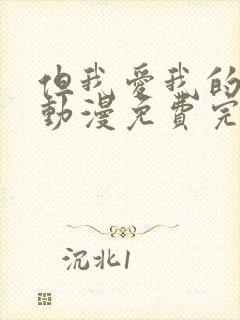 但我爱我的
動漫免費完
沉北1